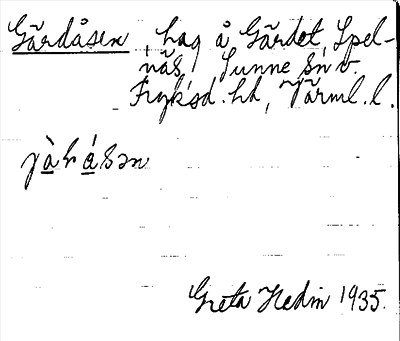 Gärdåsen, hag å Gärdet, Spel-
näs, Sunne sn o.
Fryksd. hd, Värml. l.
jàrásən
Greta Hedin 1935.